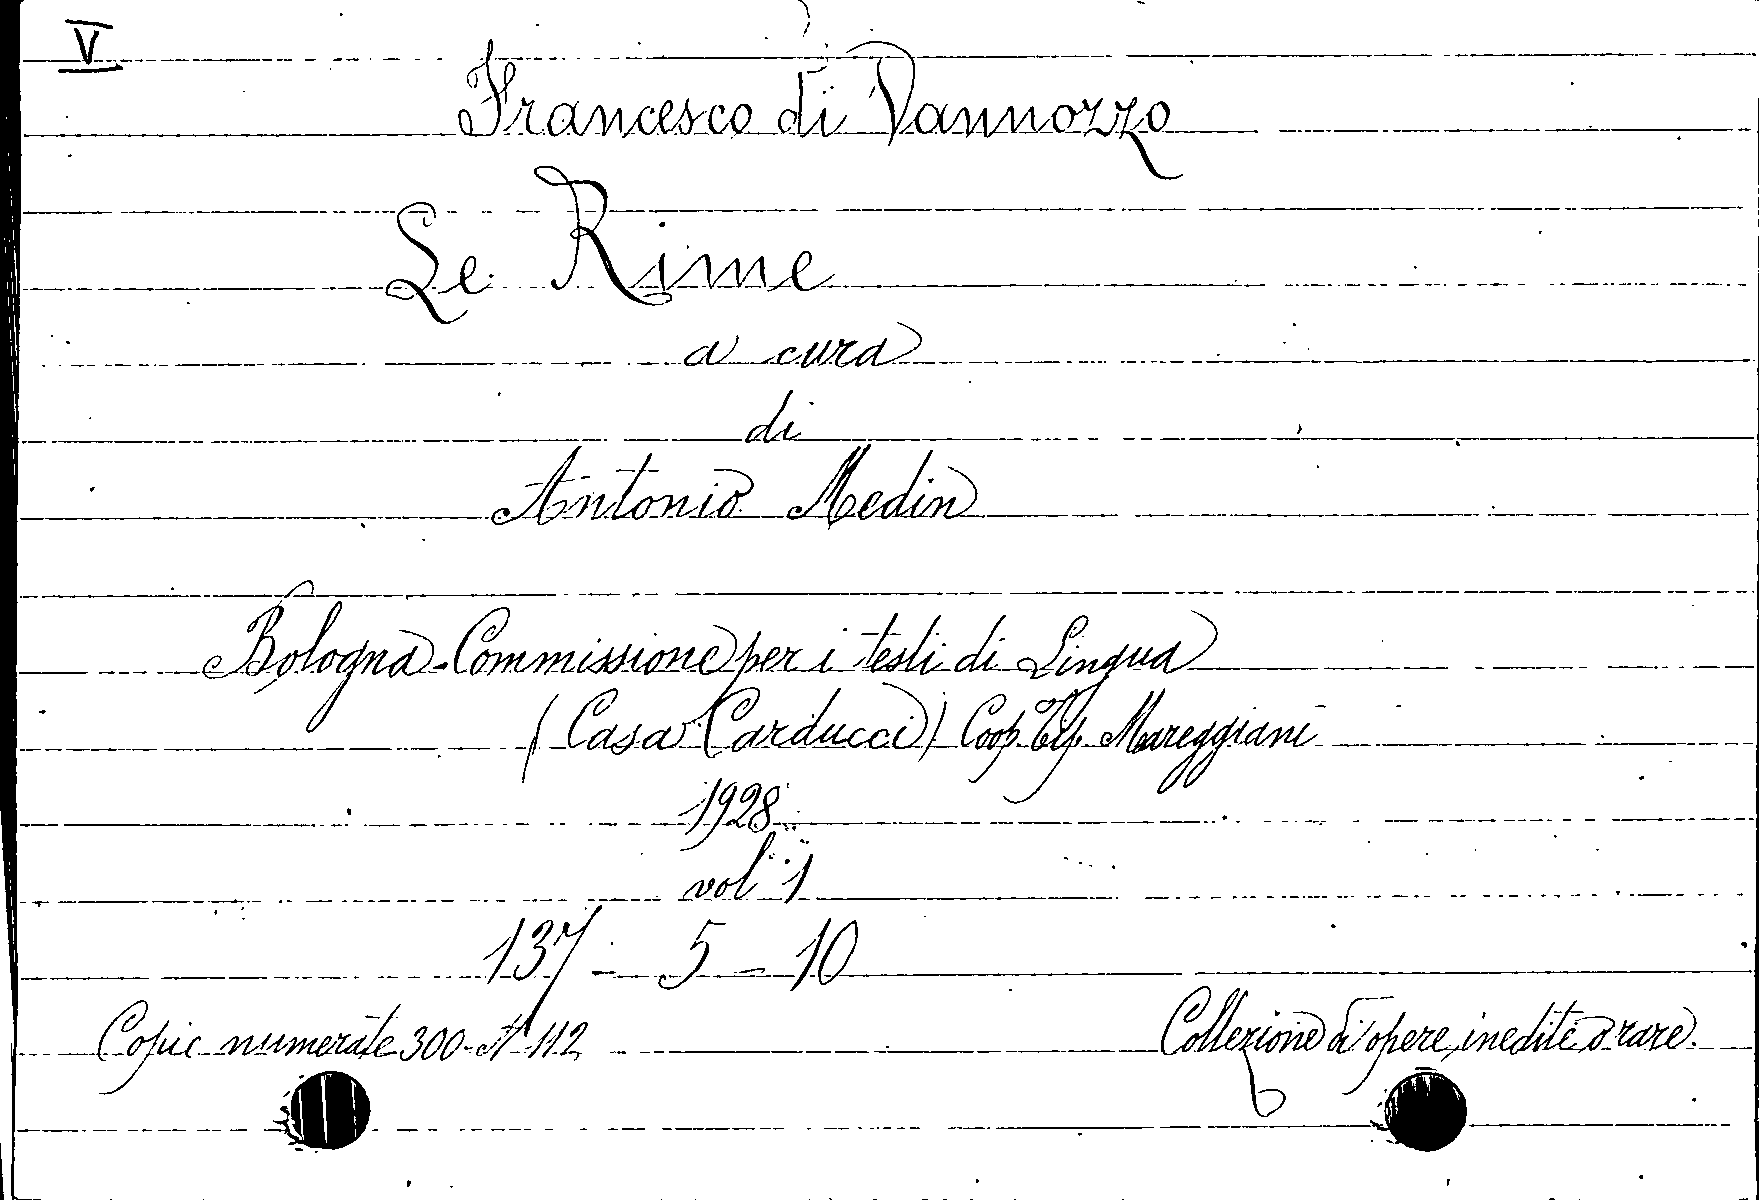 V
Francesco di Vannozzo
Le Rime
a cura
di
Antonio Medin
Bologna-Commissione per i testi di Lingua
(Casa Carducci) Coop. Tip. Mareggiani
1928
vol 1
137 - 5 - 10
Copie numerate 300 - N 112
Collezione di opere inedite o rare.